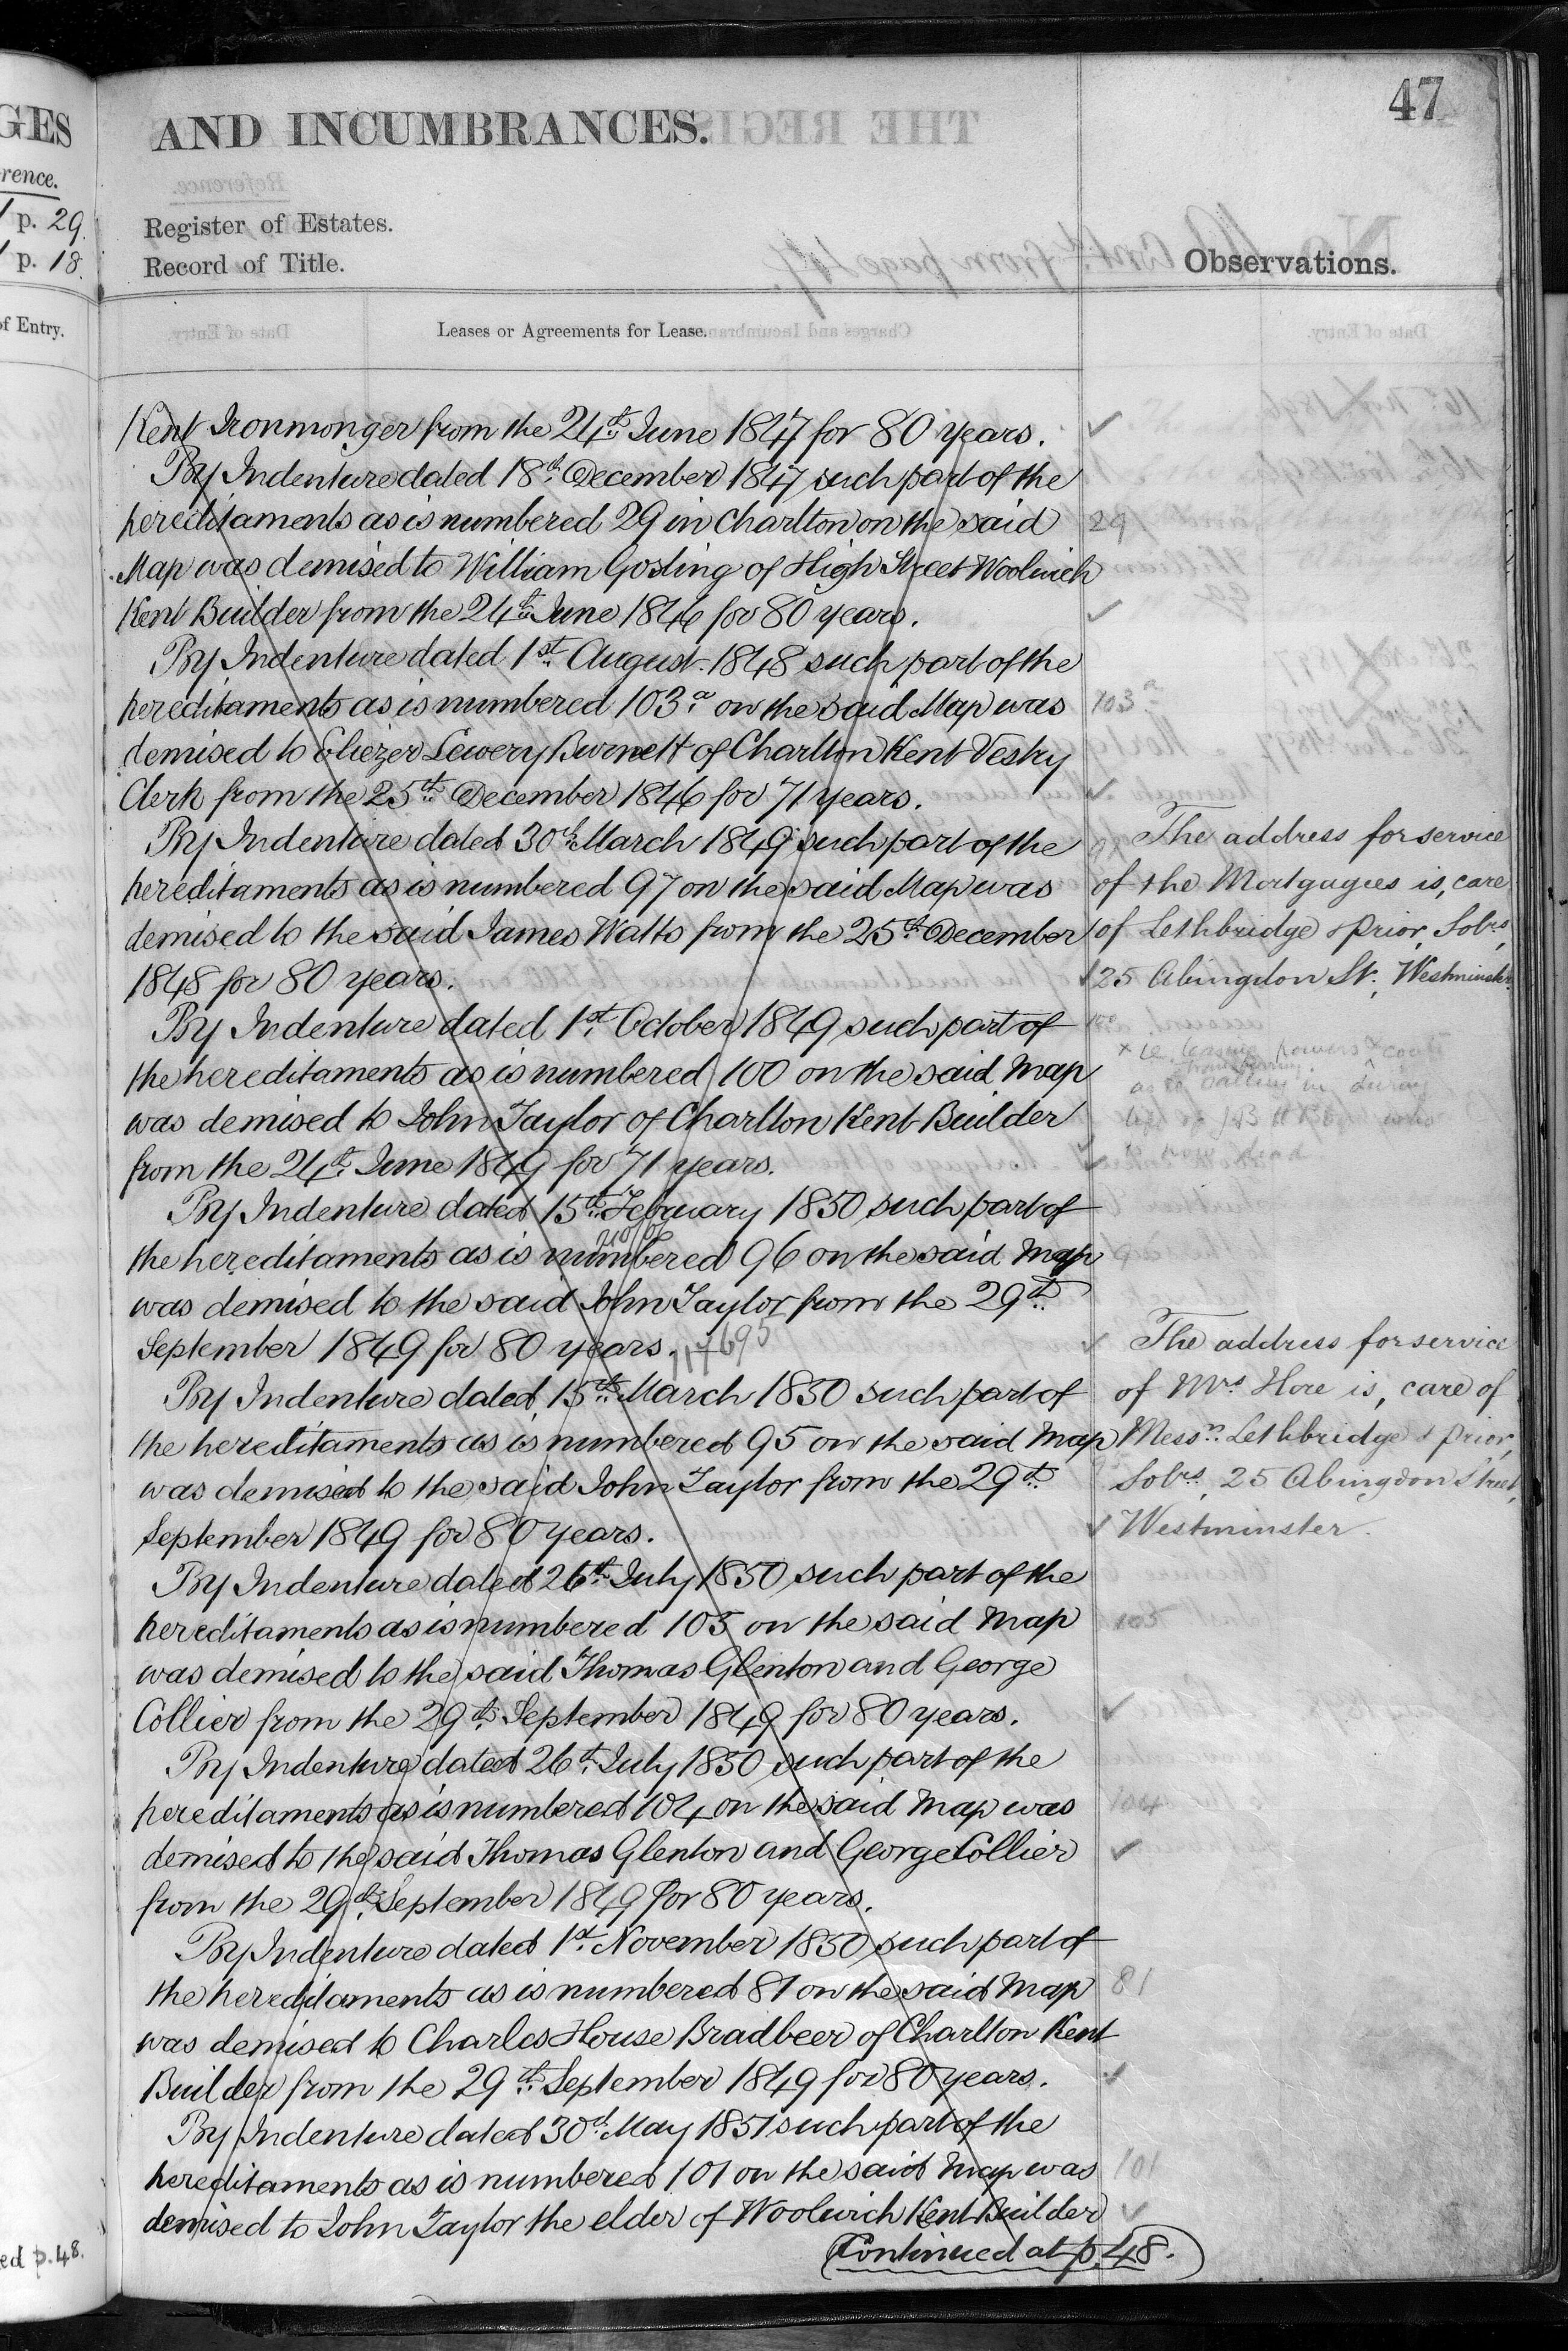 47
GES
AND INCUMBRANCES.
rence.
p. 29.
Register of Estates.
p. 18.
Record of Title.
Observations.
of Entry.
Leases or Agreements for Lease.
Kent Ironmonger from the 24th June 1847 for 80 years.
By Indenture dated 18th December 1847 such part of the
hereditaments as is numbered 29 in Charlton on the said
29
Map was demised to William Gosling of High Street Woolwich
Kent Builder from the 24th June 1846 for 80 years.
By Indenture dated 1st August 1848 such part of the
hereditaments as is numbered 103a on the said Map was
103a
demised to Eliezer Lewery Burnett of Charlton Kent Vestry
Clerk from the 25th December 1846 for 71 years.
By Indenture dated 30th March 1849 such part of the
hereditaments as is numbered 97 on the said Map was
demised to the said James Watts from the 25th December
1848 for 80 years.
The address for service
of the Mortgagees is, care
of Lethbridge & Prior, Solrs,
25 Abingdon St., Westminster.
By Indenture dated 1st October 1849 such part of
100
the hereditaments as is numbered 100 on the said Map
was demised to John Taylor of Charlton Kent Builder
from the 24th June 1849 for 71 years.
leasing powers
as to in during
who
is now dead
By Indenture dated 15th February 1850 such part of
the hereditaments as is numbered 96 on the said Map
was demised to the said John Taylor from the 29th
September 1849 for 80 years.
117695
By Indenture dated 15th March 1850 such part of
the hereditaments as is numbered 95 on the said Map
was demised to the said John Taylor from the 29th
September 1849 for 80 years.
The address for service
of Mrs Hore is, care of
Messrs. Lethbridge & Prior,
Solrs, 25 Abingdon Street,
Westminster.
By Indenture dated 26th July 1850 such part of the
hereditaments as is numbered 105 on the said Map
105
was demised to the said Thomas Glenton and George
Collier from the 29th September 1849 for 80 years.
By Indenture dated 26th July 1850 such part of the
hereditaments as is numbered 104 on the said Map was
104
demised to the said Thomas Glenton and George Collier
from the 29th September 1849 for 80 years.
By Indenture dated 1st November 1850 such part of
the hereditaments as is numbered 81 on the said Map
81
was demised to Charles House Bradbeer of Charlton Kent
Builder from the 29th September 1849 for 80 years.
By Indenture dated 30th May 1851 such part of the
hereditaments as is numbered 101 on the said Map was
101
demised to John Taylor the elder of Woolwich Kent Builder
Continued at p. 48.
ed p. 48.